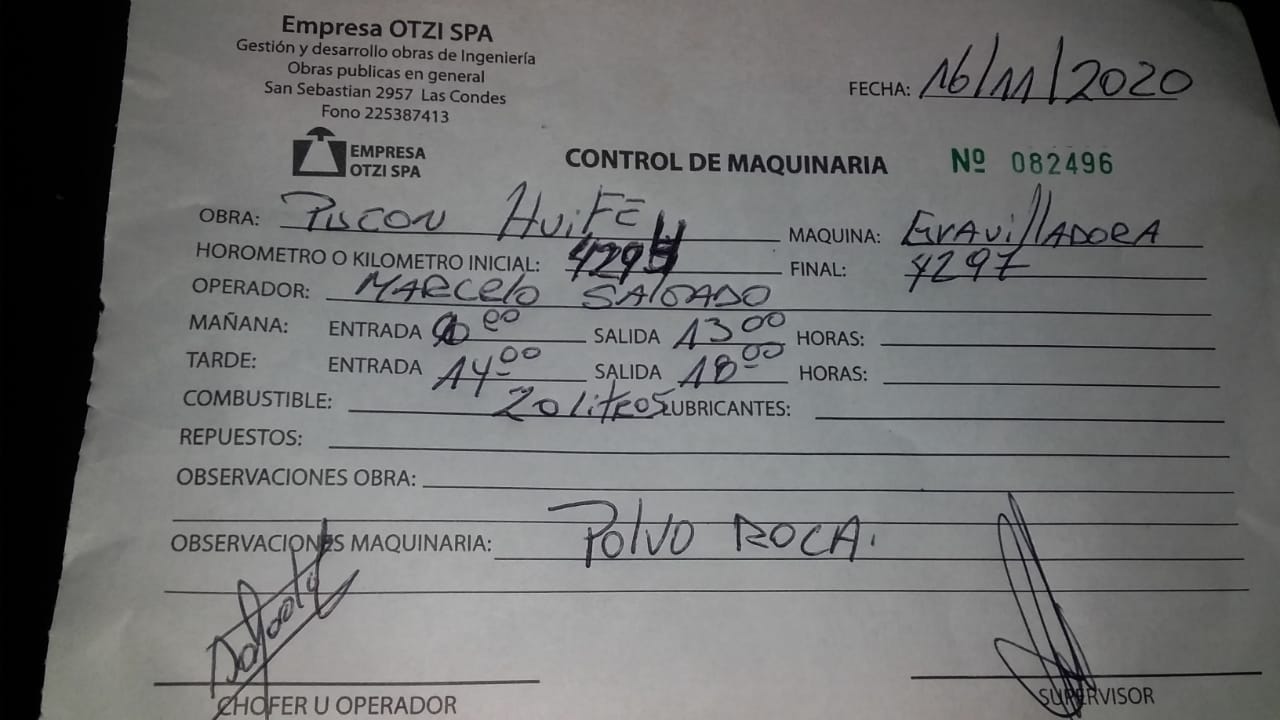 Empresa OTZI SPA
Gestión y desarrollo obras de Ingeniería
Obras publicas en general
San Sebastian 2957 Las Condes
Fono 225387413
FECHA: 16/11/2020
EMPRESA
OTZI SPA
CONTROL DE MAQUINARIA Nº 082496
OBRA: Puscon HuiFE MAQUINA: GravillADORA
HOROMETRO O KILOMETRO INICIAL: 4294 FINAL: 4297
OPERADOR: MARCELO SALGADO
MAÑANA: ENTRADA 00 SALIDA 13 00 HORAS:
TARDE: ENTRADA 14 00 SALIDA 18 00 HORAS:
COMBUSTIBLE: 20 litros LUBRICANTES:
REPUESTOS:
OBSERVACIONES OBRA:
OBSERVACIONES MAQUINARIA: Polvo ROCA.
CHOFER U OPERADOR SUPERVISOR